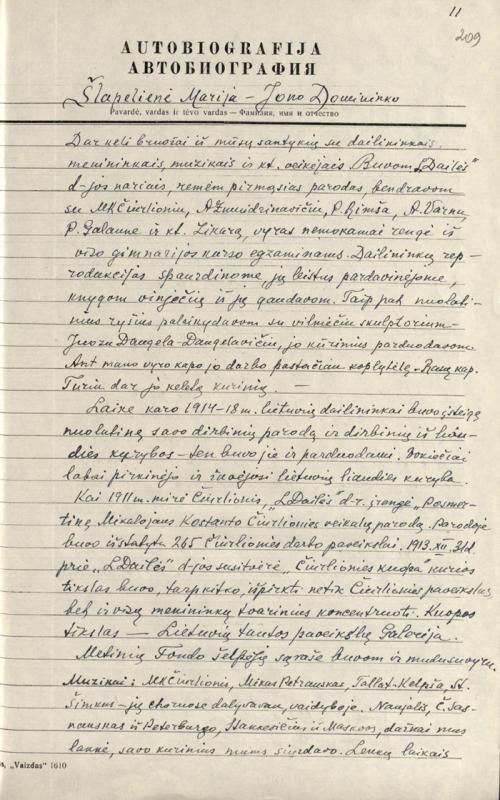 11
209
AUTOBIOGRAFIJA
АВТОБИОГРАФИЯ
Šlapelienė Marija – Jono Domininko
Pavardė, vardas ir tėvo vardas — Фамилия, имя и отчество
Dar keli bruožai iš mūsų santykių su dailininkais,
menininkais, muzikais ir kt. veikėjais. Buvom „LDailės"
d-jos nariais, rėmėm pirmąsias parodas, bendravom
su MKČiurlioniu, AŽmuidzinavičiu, P. Rimša, A. Varnu,
P. Galaune ir kt. vyras nemokamai rengė iš
viso gimnazijos kurso egzaminams. Dailininkų rep-
rodukcijas spausdinome, jų leistus pardavinėjome,
knygom vinječių iš jų gaudavom. Taip pat nuolati-
nius ryšius palaikydavom su vilniečiu skulptorium
Juozu Daugėla-Daugelavičiu, jo kūrinius parduodavom.
Ant mano vyro kapo jo darbo pastačiau koplytėlę – kap.
Turiu dar jo keletą kūrinių. —
Laike karo 1914–18 m. lietuvių dailininkai buvo įsteigę
nuolatinę savo dirbinių parodą ir dirbinių iš liau-
dies kūrybos – ten buvo jie ir parduodami. Vokiečiai
labai pirkinėjo ir žavėjosi lietuvių liaudies kūryba.
Kai 1911 m. mirė Čiurlionis, „LDailės" d-r. įrengė „Pomer-
tinę Mikalojaus Kostanto Čiurlionies veikalų parodą. Parodoje
buvo išstatyta 265 Čiurlionies darbo paveikslai. 1913. XII. 31d.
prie „LDailės" d-jos susitvėrė „Čiurlionies kuopa" kurios
tikslas buvo, tarp kitko, išpirkti netik Čiurlionies paveikslus,
bet ir visų menininkų tvarinius koncentruoti. Kuopos
tikslas — Lietuvių tautos paveikslų Galerija.
Metinių Fondo šelpėjų sąraše buvom ir mudu su vyru.
Muzikai: MKČiurlionis, Mikas Petrauskas, Tallat-Kelpša, St.
Šimkus – jų choruose dalyvavau, vaidyboje. Naujalis, Č. Sas-
nauskas iš Peterburgo, iš Maskvos, dažnai mus
lankė, savo kūrinius mums siųsdavo. Lenkų laikais
„Vaizdas" 1610